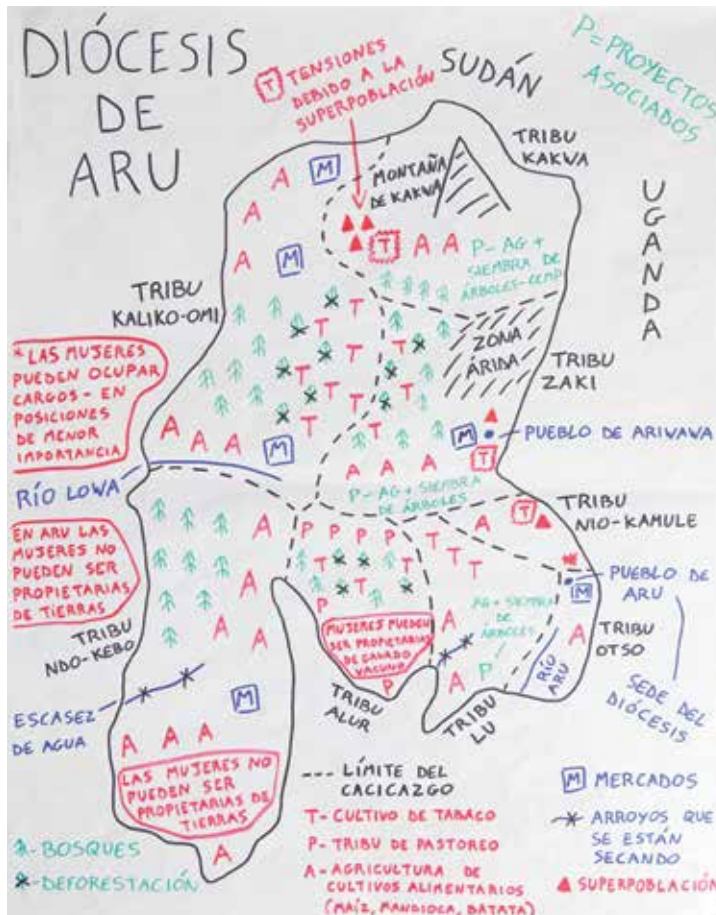 DIÓCESIS
DE
ARU
T TENSIONES
DEBIDO A LA
SUPERPOBLACIÓN
SUDÁN
P=PROYECTOS
ASOCIADOS
TRIBU
KAKWA
UGANDA
MONTAÑA
DE KAKWA
A
M
A
A
M
T
A A
P-AG+
SIEMBRA DE
ÁRBOLES-CEMP
TRIBU
KALIKO-OMI
T
T
T
T
T
T
T
T
T
T
T
T
T
ZONA
ÁRIDA
TRIBU
ZAKI
* LAS MUJERES
PUEDEN OCUPAR
CARGOS - EN
POSICIONES
DE MENOR
IMPORTANCIA
A A A A
M
M
PUEBLO DE ARIWAWA
T
A A A A
P-AG+SIEMBRA
DE ÁRBOLES
RÍO LOWA
TRIBU
NIO-KAMULE
A
T
EN ARU LAS
MUJERES NO
PUEDEN SER
PROPIETARIAS
DE TIERRAS
A
P P P P
T
T
T
T
T
T
PUEBLO DE
ARU
M
A
A
A
A
P
MUJERES PUEDEN
SER PROPIETARIAS
DE GANADO
VACUNO
P
AG+SIEMBRA
DE
ÁRBOLES
A
A
P
A
TRIBU
OTSO
RÍO
ARU
TRIBU
NDO-KEBO
TRIBU
ALUR
TRIBU
LU
SEDE DEL
DIÓCESIS
ESCASEZ
DE AGUA
M
A A A
LAS MUJERES NO
PUEDEN SER
PROPIETARIAS DE
TIERRAS
A
--- LÍMITE DEL
CACICAZGO
T- CULTIVO DE TABACO
P- TRIBU DE PASTOREO
A- AGRICULTURA DE
CULTIVOS ALIMENTARIOS
(MAÍZ, MANDIOCA, BATATA)
M MERCADOS
ARROYOS QUE
SE ESTÁN
SECANDO
SUPERPOBLACIÓN
-BOSQUES
-DEFORESTACIÓN